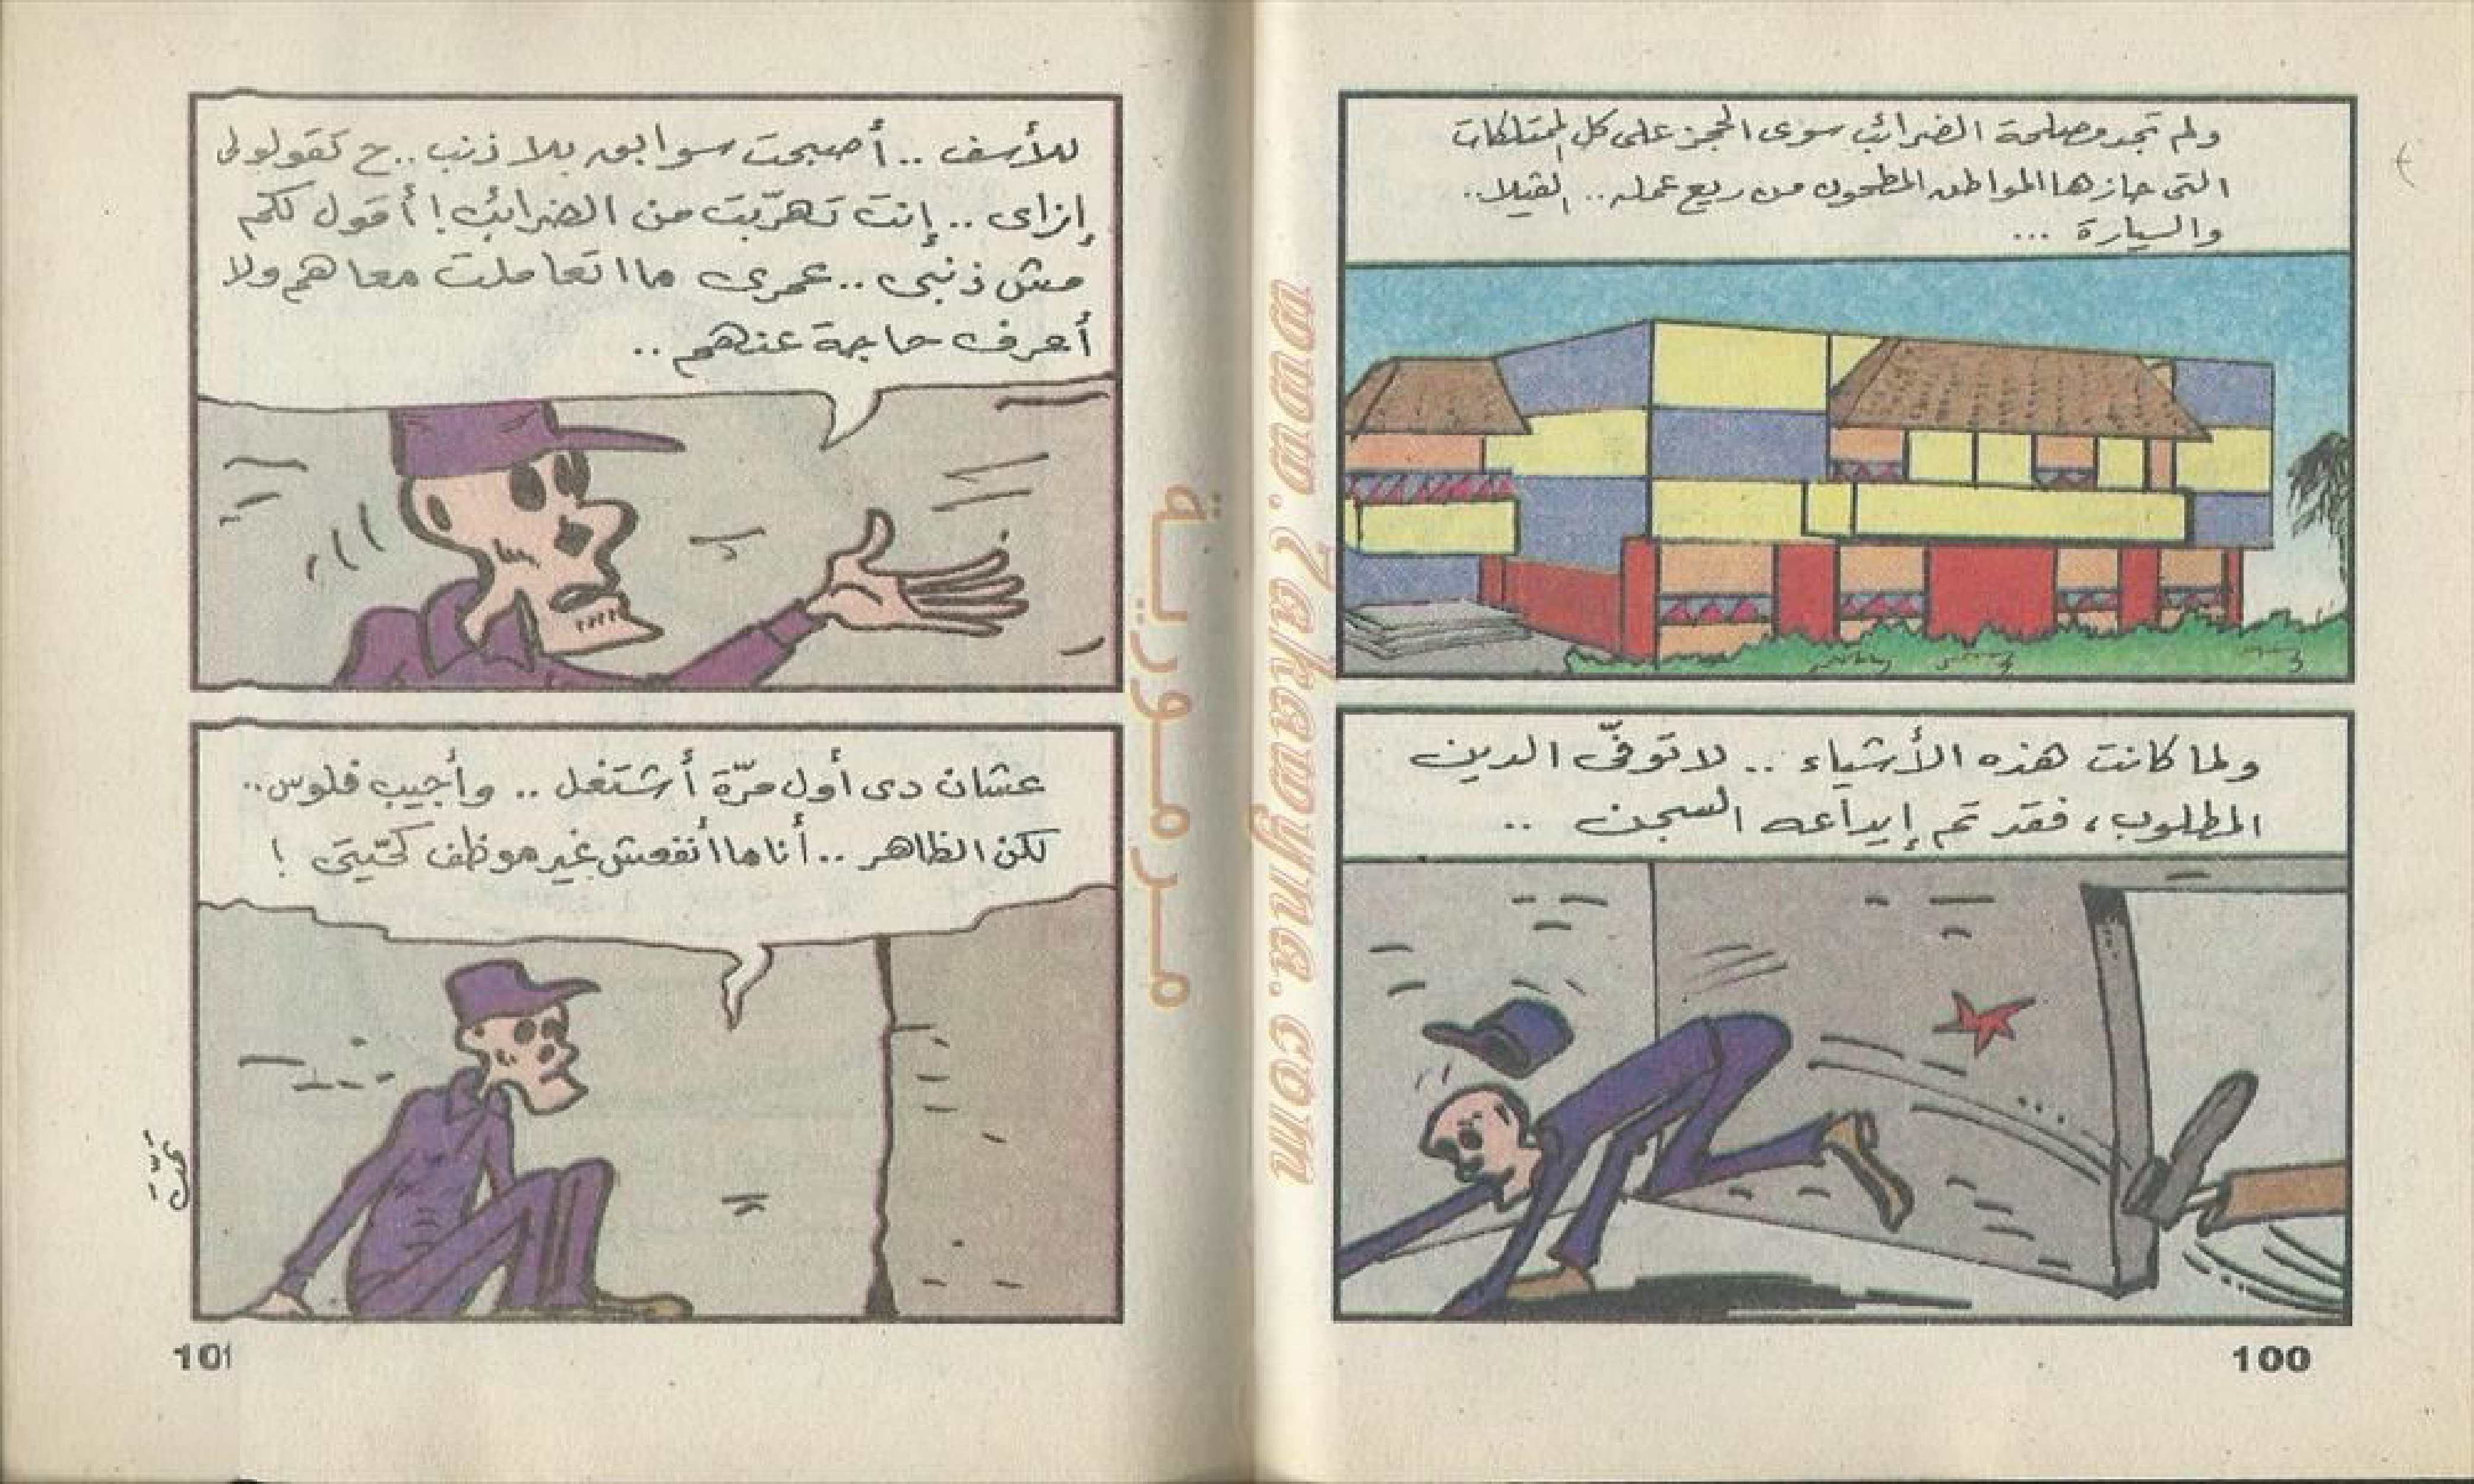 ولم تجد مصلحة الضرائب سوى الحجز على كل الممتلكات
التى حازها المواطن المطحون من ريع عمله.. الفيلا..
والسيارة ...
ولما كانت هذه الأشياء .. لا توفّى الدين
المطلوب، فقد تم إيداعه السجن ..
100
للأسف .. أصبحت سوابق بلا ذنب .. ح تقولولى
إزاى .. إنت تهرّبت من الضرائب! أقول لكم
مش ذنبى .. عمرى ما اتعاملت معاهم ولا
أعرف حاجة عنهم ..
عشان دى أول مرّة أشتغل .. وأجيب فلوس..
لكن الظاهر .. أنا ما أنفعش غير موظف كحّيتى !
تمّت
101
www.7akawyna.com
مرمورية